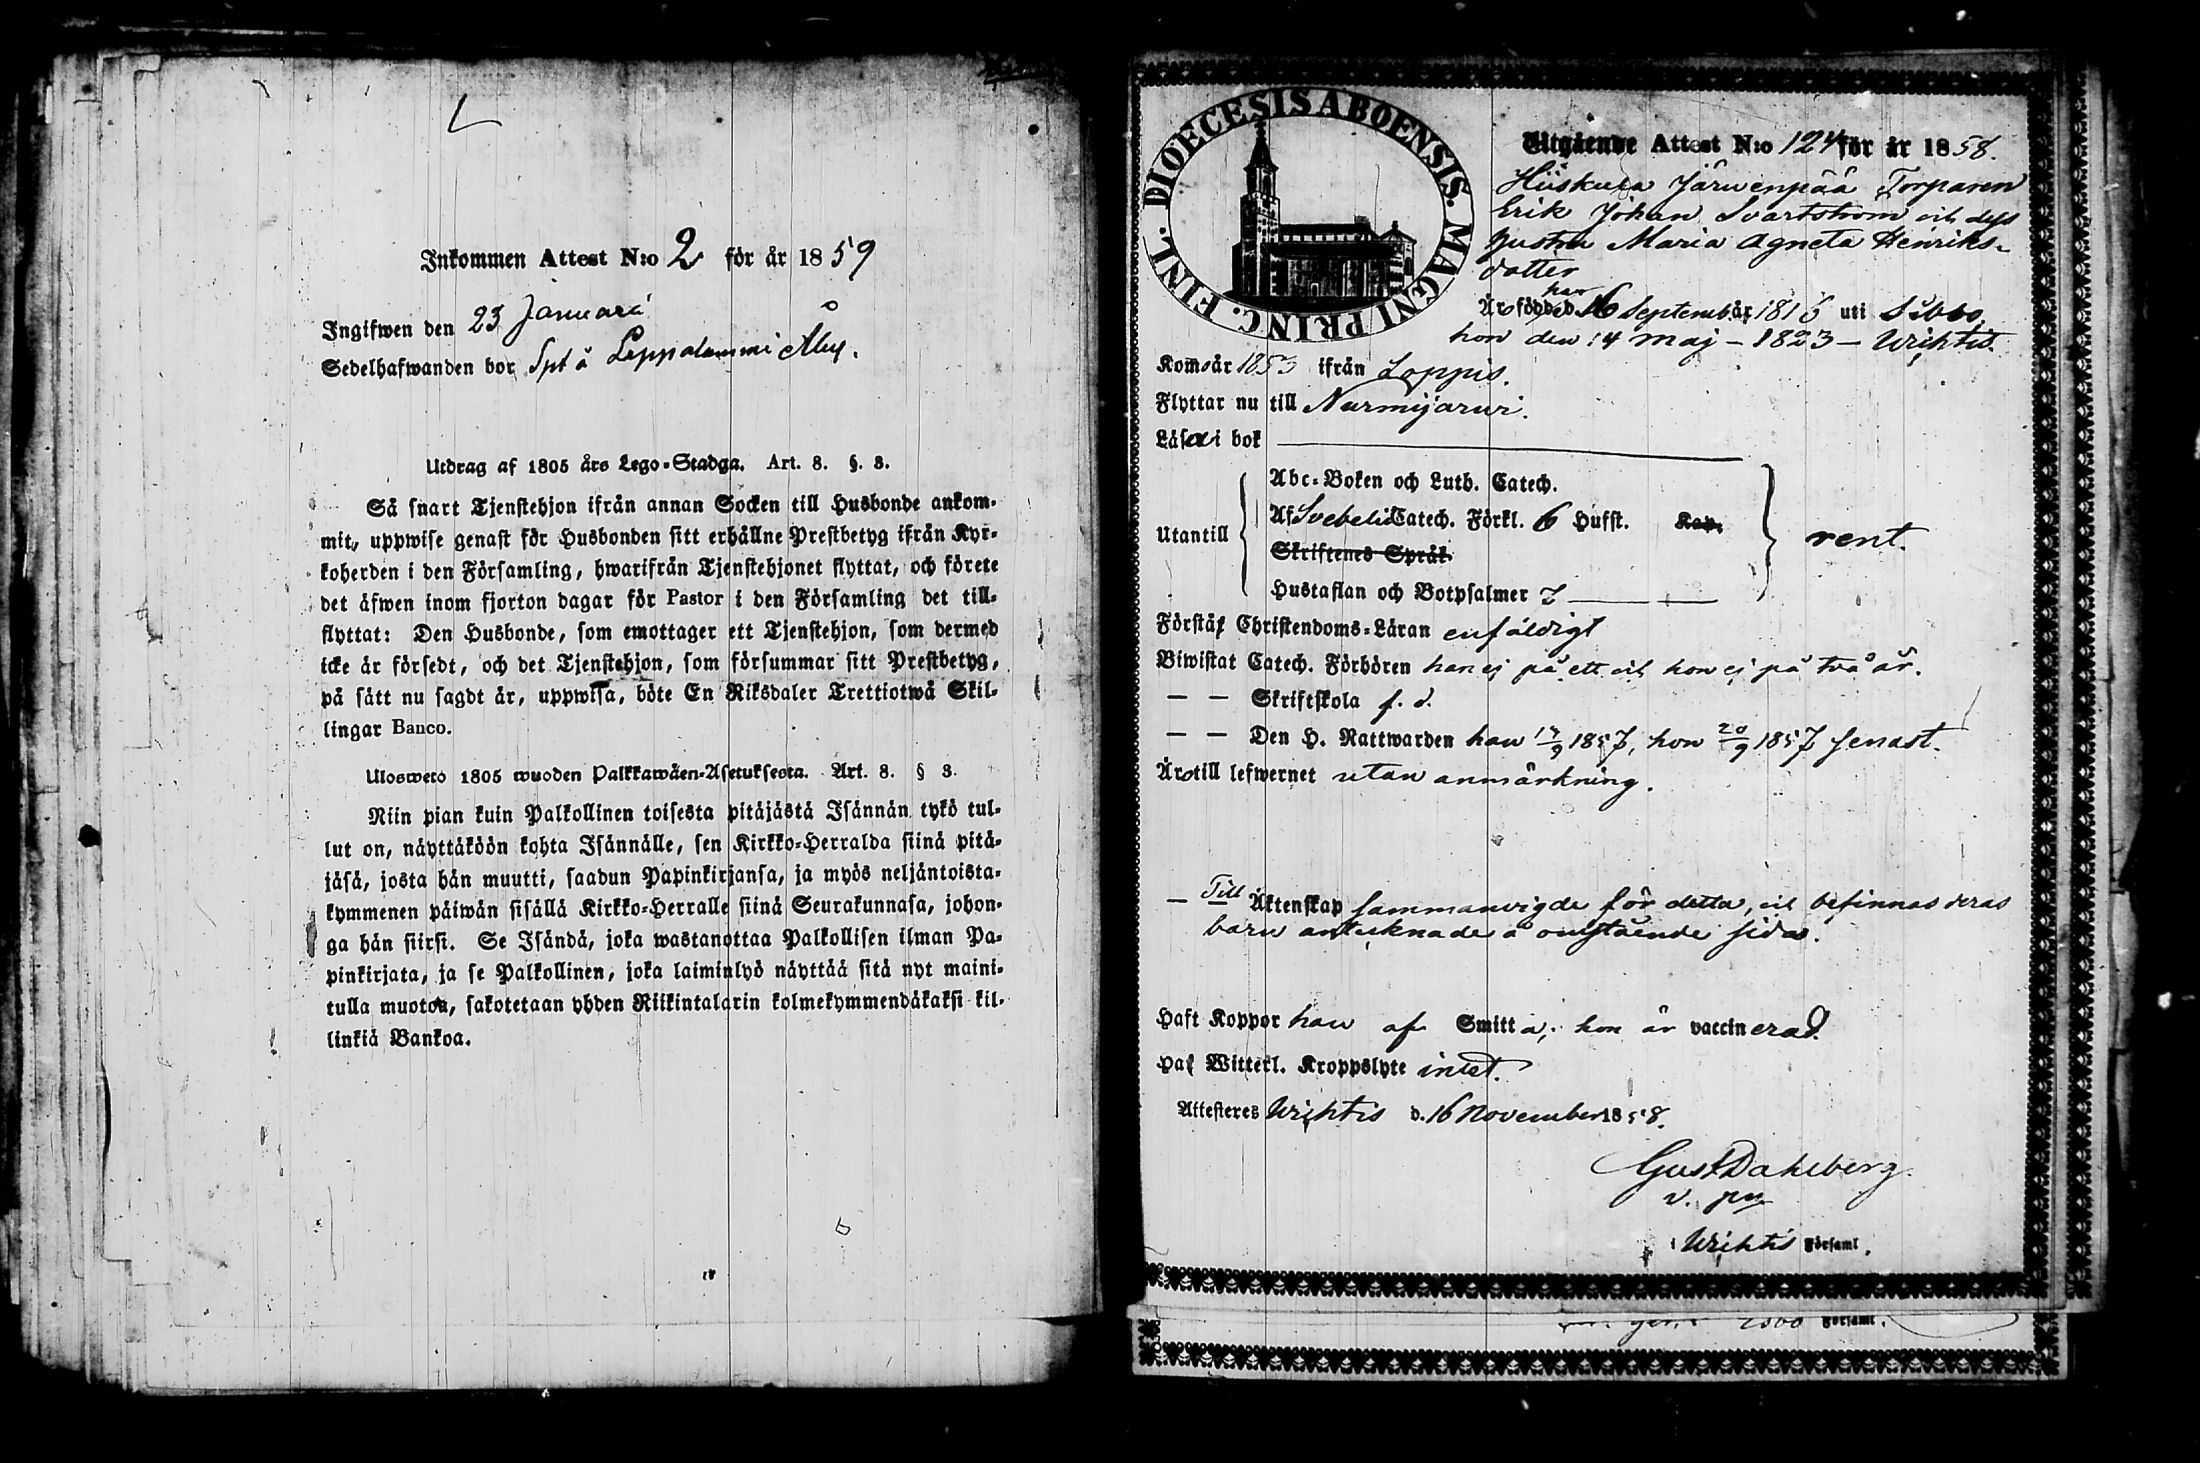 Inkommen Attest N:o 2 för år 1859
Ingifwen den 23 Januari
Sedelhafwanden bor Spt å Leppälammi
Utdrag af 1805 års Lego-Stadga. Art. 8. §. 3.
Så snart Tjenstehjon ifrån annan Socken till Husbonde ankom-
mit, uppwise genast för Husbonden sitt erhållne Prestbetyg ifrån Kyr-
koherden i den Församling, hwarifrån Tjenstehjonet flyttat, och förete
det äfwen inom fjorton dagar för Pastor i den Församling det till-
flyttat: Den Husbonde, som emottager ett Tjenstehjon, som dermed
icke är försedt, och det Tjenstehjon, som försummar sitt Prestbetyg,
på sätt nu sagdt är, uppwisa, böte En Riksdaler Trettiotwå Skil-
lingar Banco.
Ulosweto 1805 wuoden Palkkawäen-Asetuksesta. Art. 8. § 3.
Niin pian kuin Palkollinen toisesta pitäjästä Isännän tykö tul-
lut on, näyttäköön kohta Isännälle, sen Kirkko-Herralda siinä pitä-
jäsä, josta hän muutti, saadun Papinkirjansa, ja myös neljäntoista-
kymmenen päiwän sisällä Kirkko-Herralle siinä Seurakunnasa, johon-
ga hän siirsi. Se Isändä, joka wastanottaa Palkollisen ilman Pa-
pinkirjata, ja se Palkollinen, joka laiminlyö näyttää sitä nyt maini-
tulla muoton, sakotetaan yhden Riikintalarin kolmekymmendäkaksi kil-
linkiä Bankoa.
DIOECESIS ABOENSIS. MAGNI PRINC. FINL.
Utgående Attest N:o 124 för år 1858.
Hiiskula Järwenpää Torparen
Erik Johan Svartström och dess
hustru Maria Agneta Henriks-
dotter
han
Äro födde d. 16 September år 1816 uti Sibbo,
hon den 14 Maj - 1823 - Wichtis.
Komo år 1853 ifrån Loppis.
Flyttar nu till Nurmijärwi.
Läsa i bok
Abc-Boken och Luth. Catech.
Utantill Af Svebelii Catech. Förkl. 6 Hufst. Kap. rent.
Skriftenes Språk
Hustaflan och Botpsalmer 7
Förstå Christendoms-Läran enfäldigt
Biwistat Catech. Förhören han ej på ett och hon ej på två år.
— — Skriftskola f. d.
— — Den H. Nattwarden han 1857, hon 20/9 1857 senast.
Äro till lefwernet utan anmärkning.
— Till Äktenskap sammanvigde för detta, och befinnas deras
barn antecknade å omstående sida.
Haft Koppor han af Smitta; hon är vaccinerad.
Ha Witterl. Kroppslyte intet.
Attesteres Wichtis d. 16 November 1858.
Gust Dahlberg.
v. pn
i Wichtis Församl.
Församl.